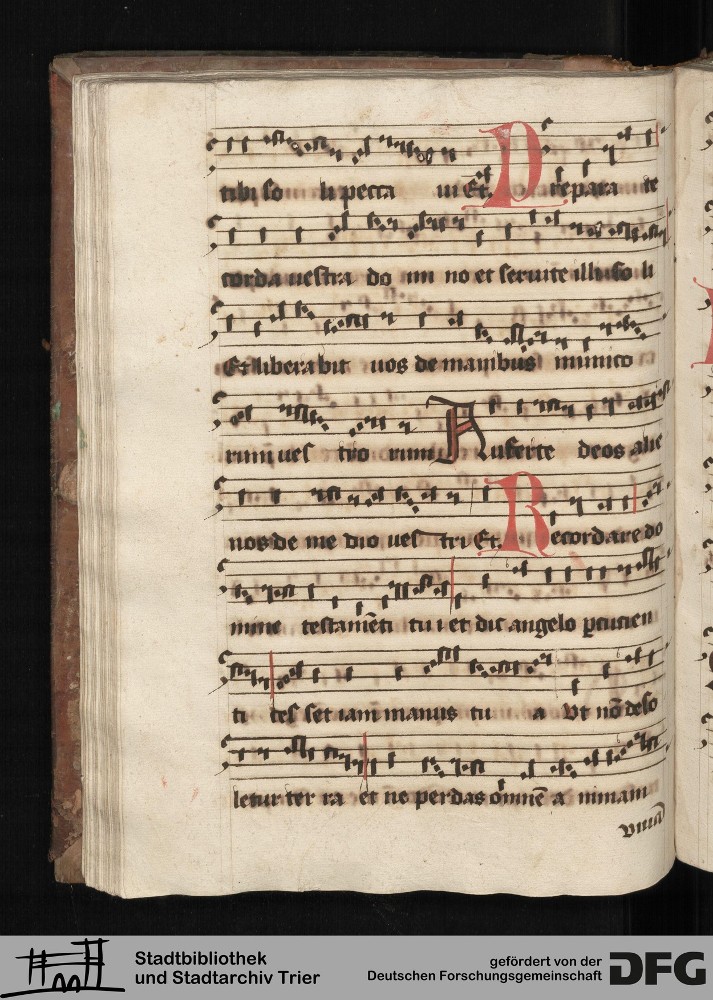 tibi so li pecca ui Et. Prepara te
corda uestra do mi no et seruite illi so li
Et liberabit uos de manibus inimico
rum ues tro rum Auferte deos alie
nos de me dio ues tri Et. Recordare do
mine testamēti tui et dic angelo ꝑcucien
ti ces set iam manus tu a Vt nō deso
letur ter ra et ne perdas omnē a nimam
viuā
Stadtbibliothek
und Stadtarchiv Trier
gefördert von der
Deutschen Forschungsgemeinschaft
DFG